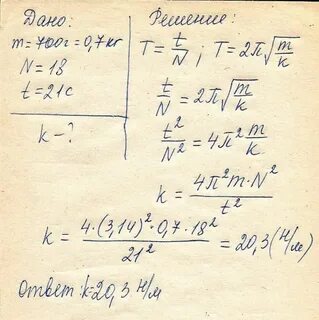 Дано:
m=700г=0,7кг
N=18
t=21с
k-?
Решение:
T=t/N; T=2π√(m/k)
t/N=2π√(m/k)
t²/N²=4π² m/k
k=4π²m·N²/t²
k=4·(3,14)²·0,7·18²/21²=20,3(Н/м)
Ответ: k=20,3 Н/м